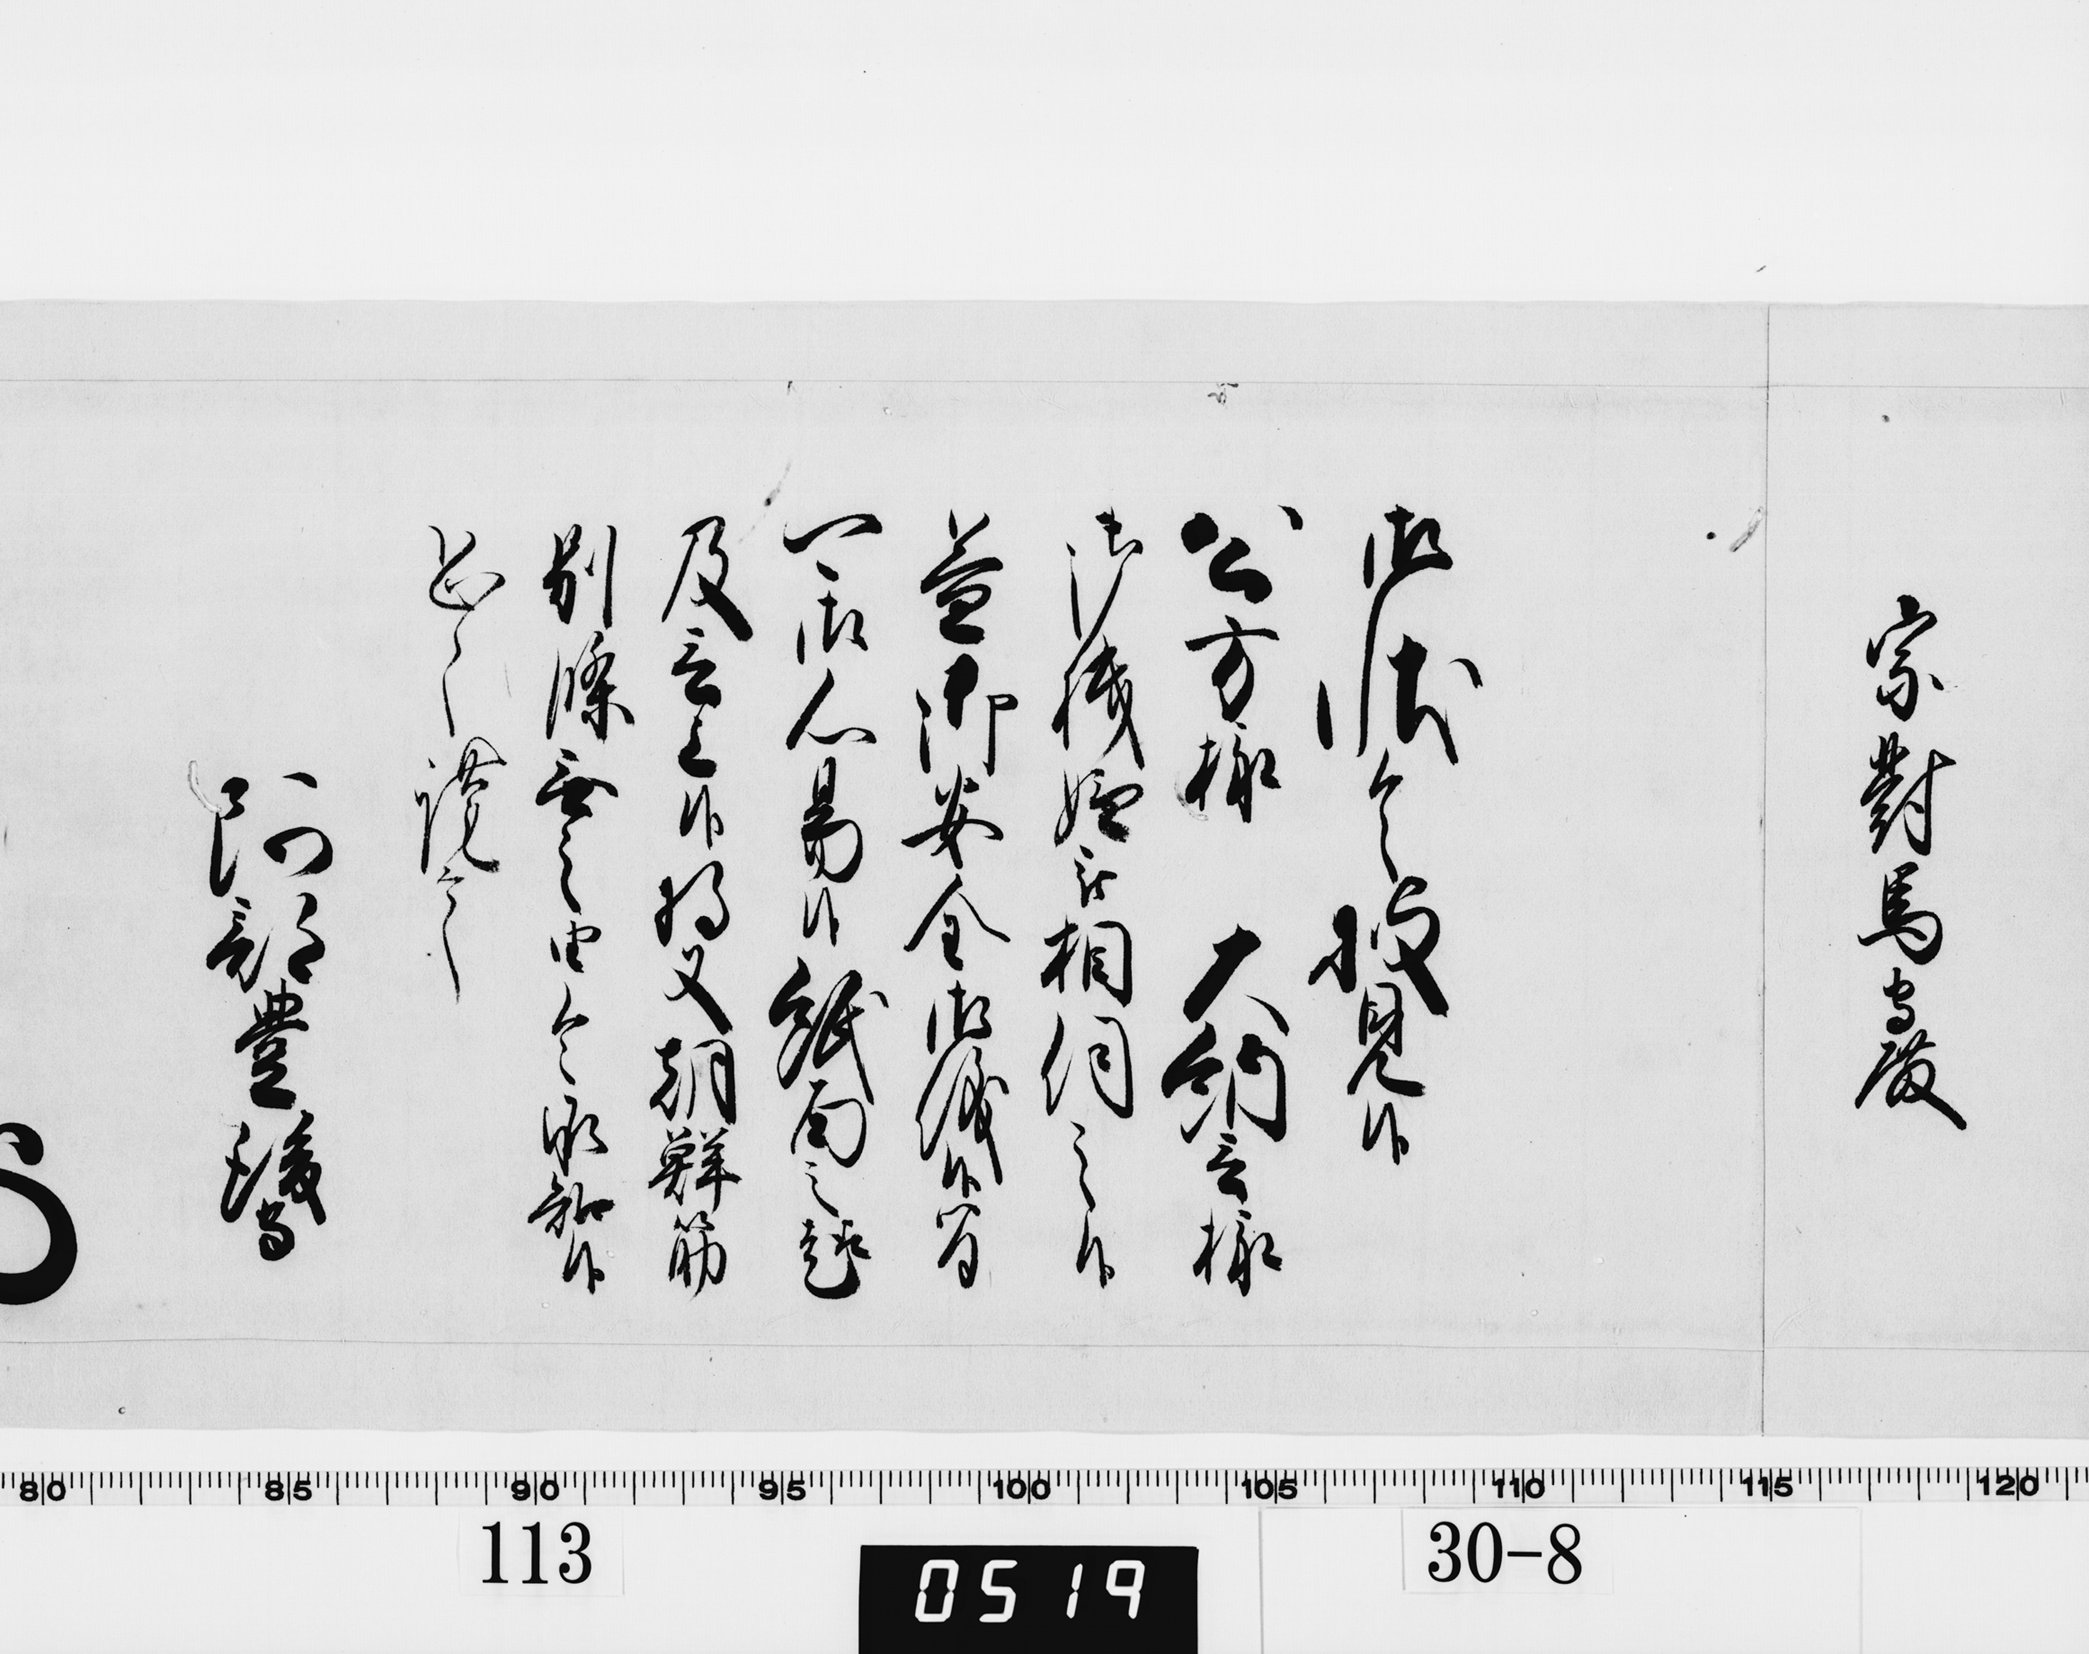 宗對馬守殿
御状令披見候
公方様 大納言様
御機嫌被相伺之候
益御安全御儀候間
可御心易候紙面之趣
及言上候将又朝鮮筋
別條無之由令承知候
恐々謹言
阿部豊後守
80 85 90 95 100 105 110 115 120
113
0519
30-8